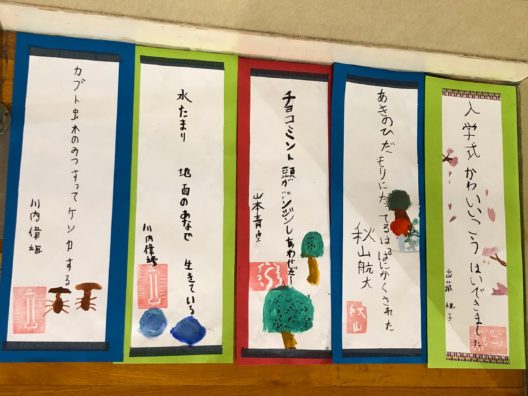 入学式 かわいいこうはいできました
あきのひだまりにたってるはるばにかくされた
秋山航大
秋山
チョコミント頭がジンジンしあわせだ
山本青空
水たまり 地面のあなで 生きている
川内偉雄
カブト虫木のみつすってケンカする
川内偉雄